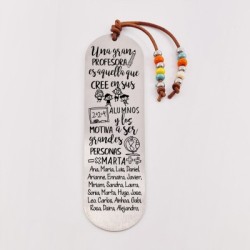 Una gran
PROFESORA
es aquella que
CREE en sus
ALUMNOS
y los
MOTIVA a ser
grandes
PERSONAS
MARTA
Ana, Maria, Luis, Daniel,
Arianne, Ennaira, Javier,
Miriam, Sandra, Laura,
Sonia, Marta, Hugo, Jose,
Leo, Carlos, Ainhoa, Gabi,
Rosa, Deira, Alejandra,